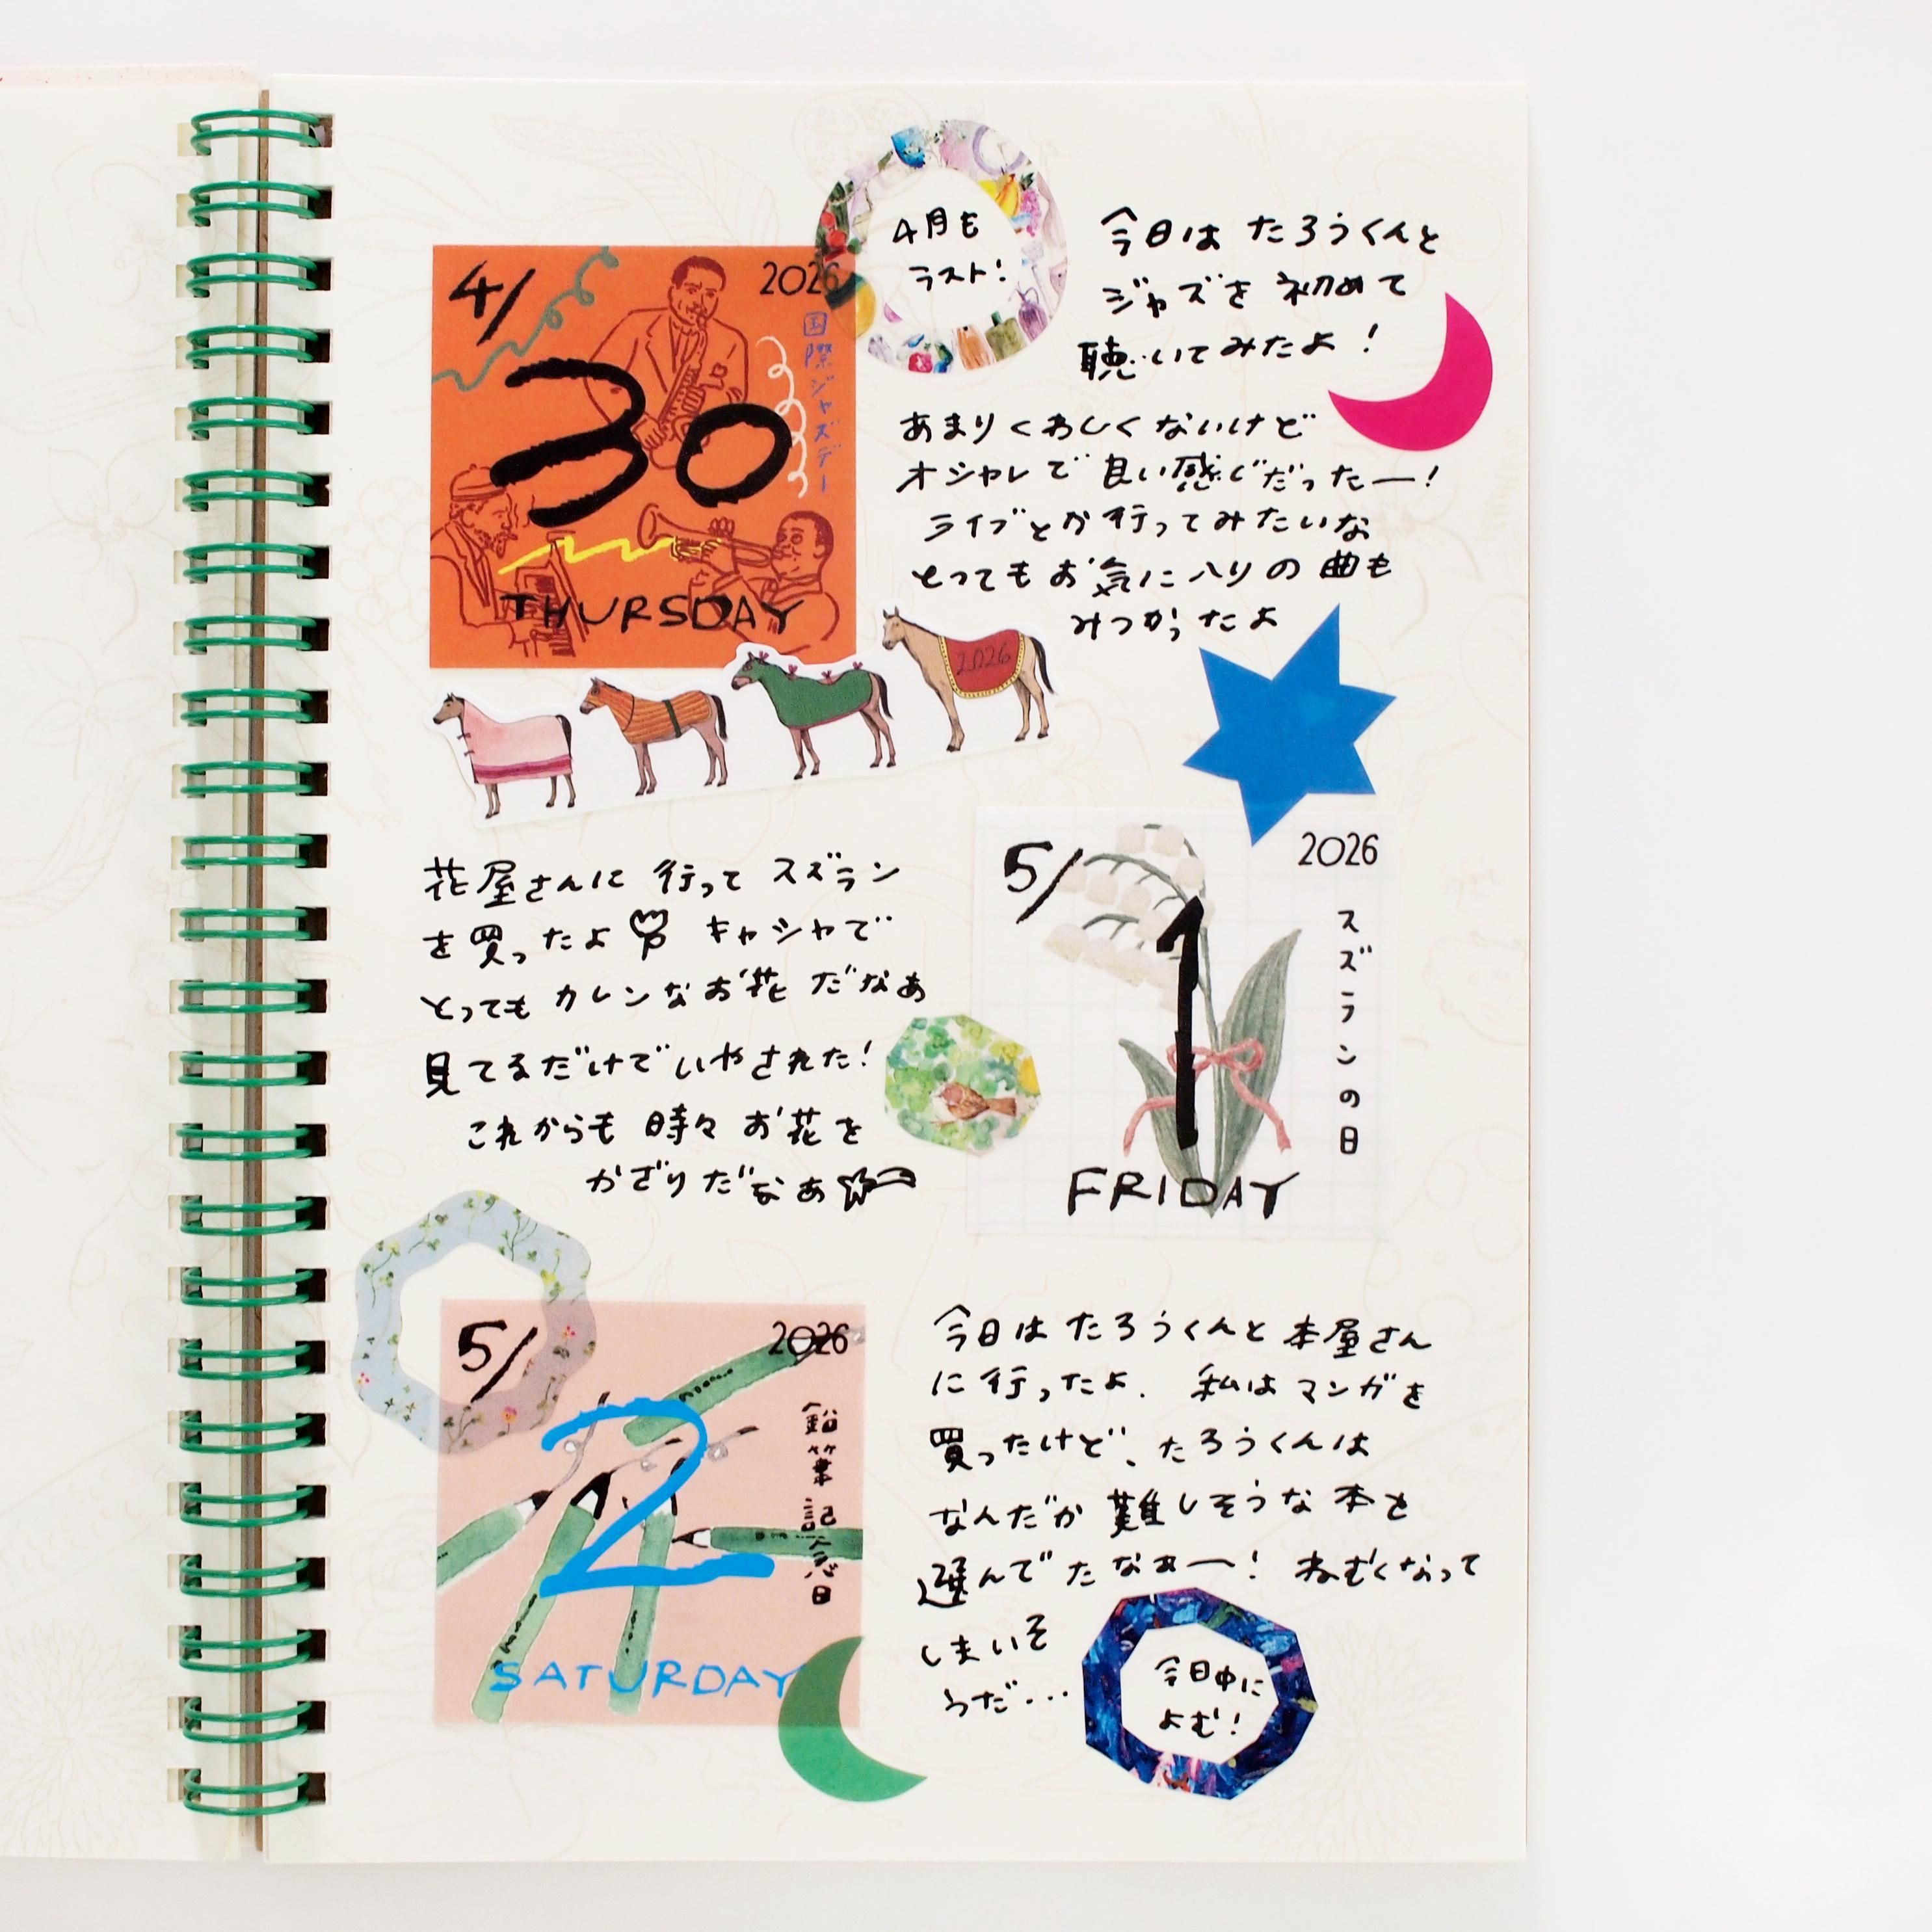 4/
2026
30
国際ジャズデー
THURSDAY
4月も
ラスト!
今日は たろうくんと
ジャズを 初めて
聴いてみたよ!
あまりくわしくないけど
オシャレで 良い感じだったー!
ライブとか行ってみたいな
とってもお気に入りの曲も
みつかったよ
2026
花屋さんに 行って スズラン
を買ったよ キャシャで
とっても カレンなお花 だなあ
見てるだけでいやされた!
これからも 時々 お花を
かざりだなあ
5/
2026
1
スズランの日
FRIDAY
5/
2026
2
鉛筆記念日
SATURDAY
今日は たろうくんと 本屋さん
に 行ったよ. 私は マンガを
買ったけど、たろうくんは
なんだか 難しそうな 本を
選んでたなぁー! ねむくなって
しまいそ
うだ…
今日中に
よむ!